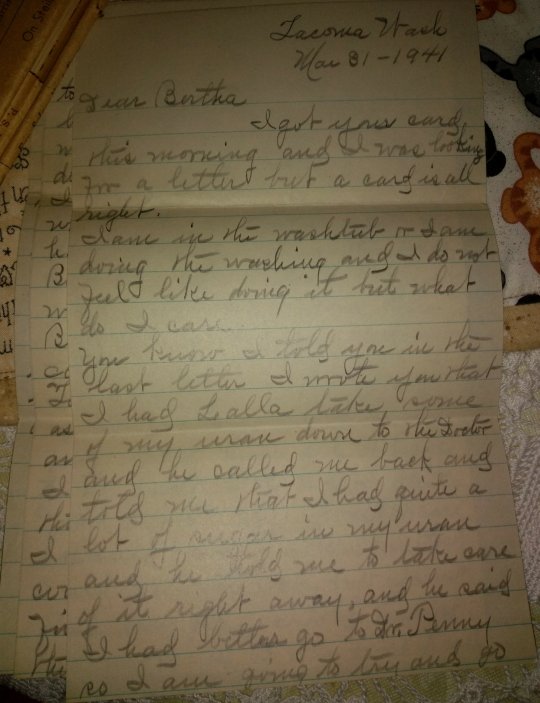 Tacoma Wash
Mar 31-1941
Dear Bertha
I got your card
this morning and I was looking
for a letter but a card is all
right.
I am in the washtub or I am
doing the washing and I do not
feel like doing it but what
do I care
You know I told you in the
last letter I wrote you that
I had Lalla take some
of my uran down to the Doctor
and he called me back and
told me that I had quite a
lot of sugar in my uran
and he told me to take care
of it right away, and he said
I had better go to Dr. Penny
so I am going to try and go